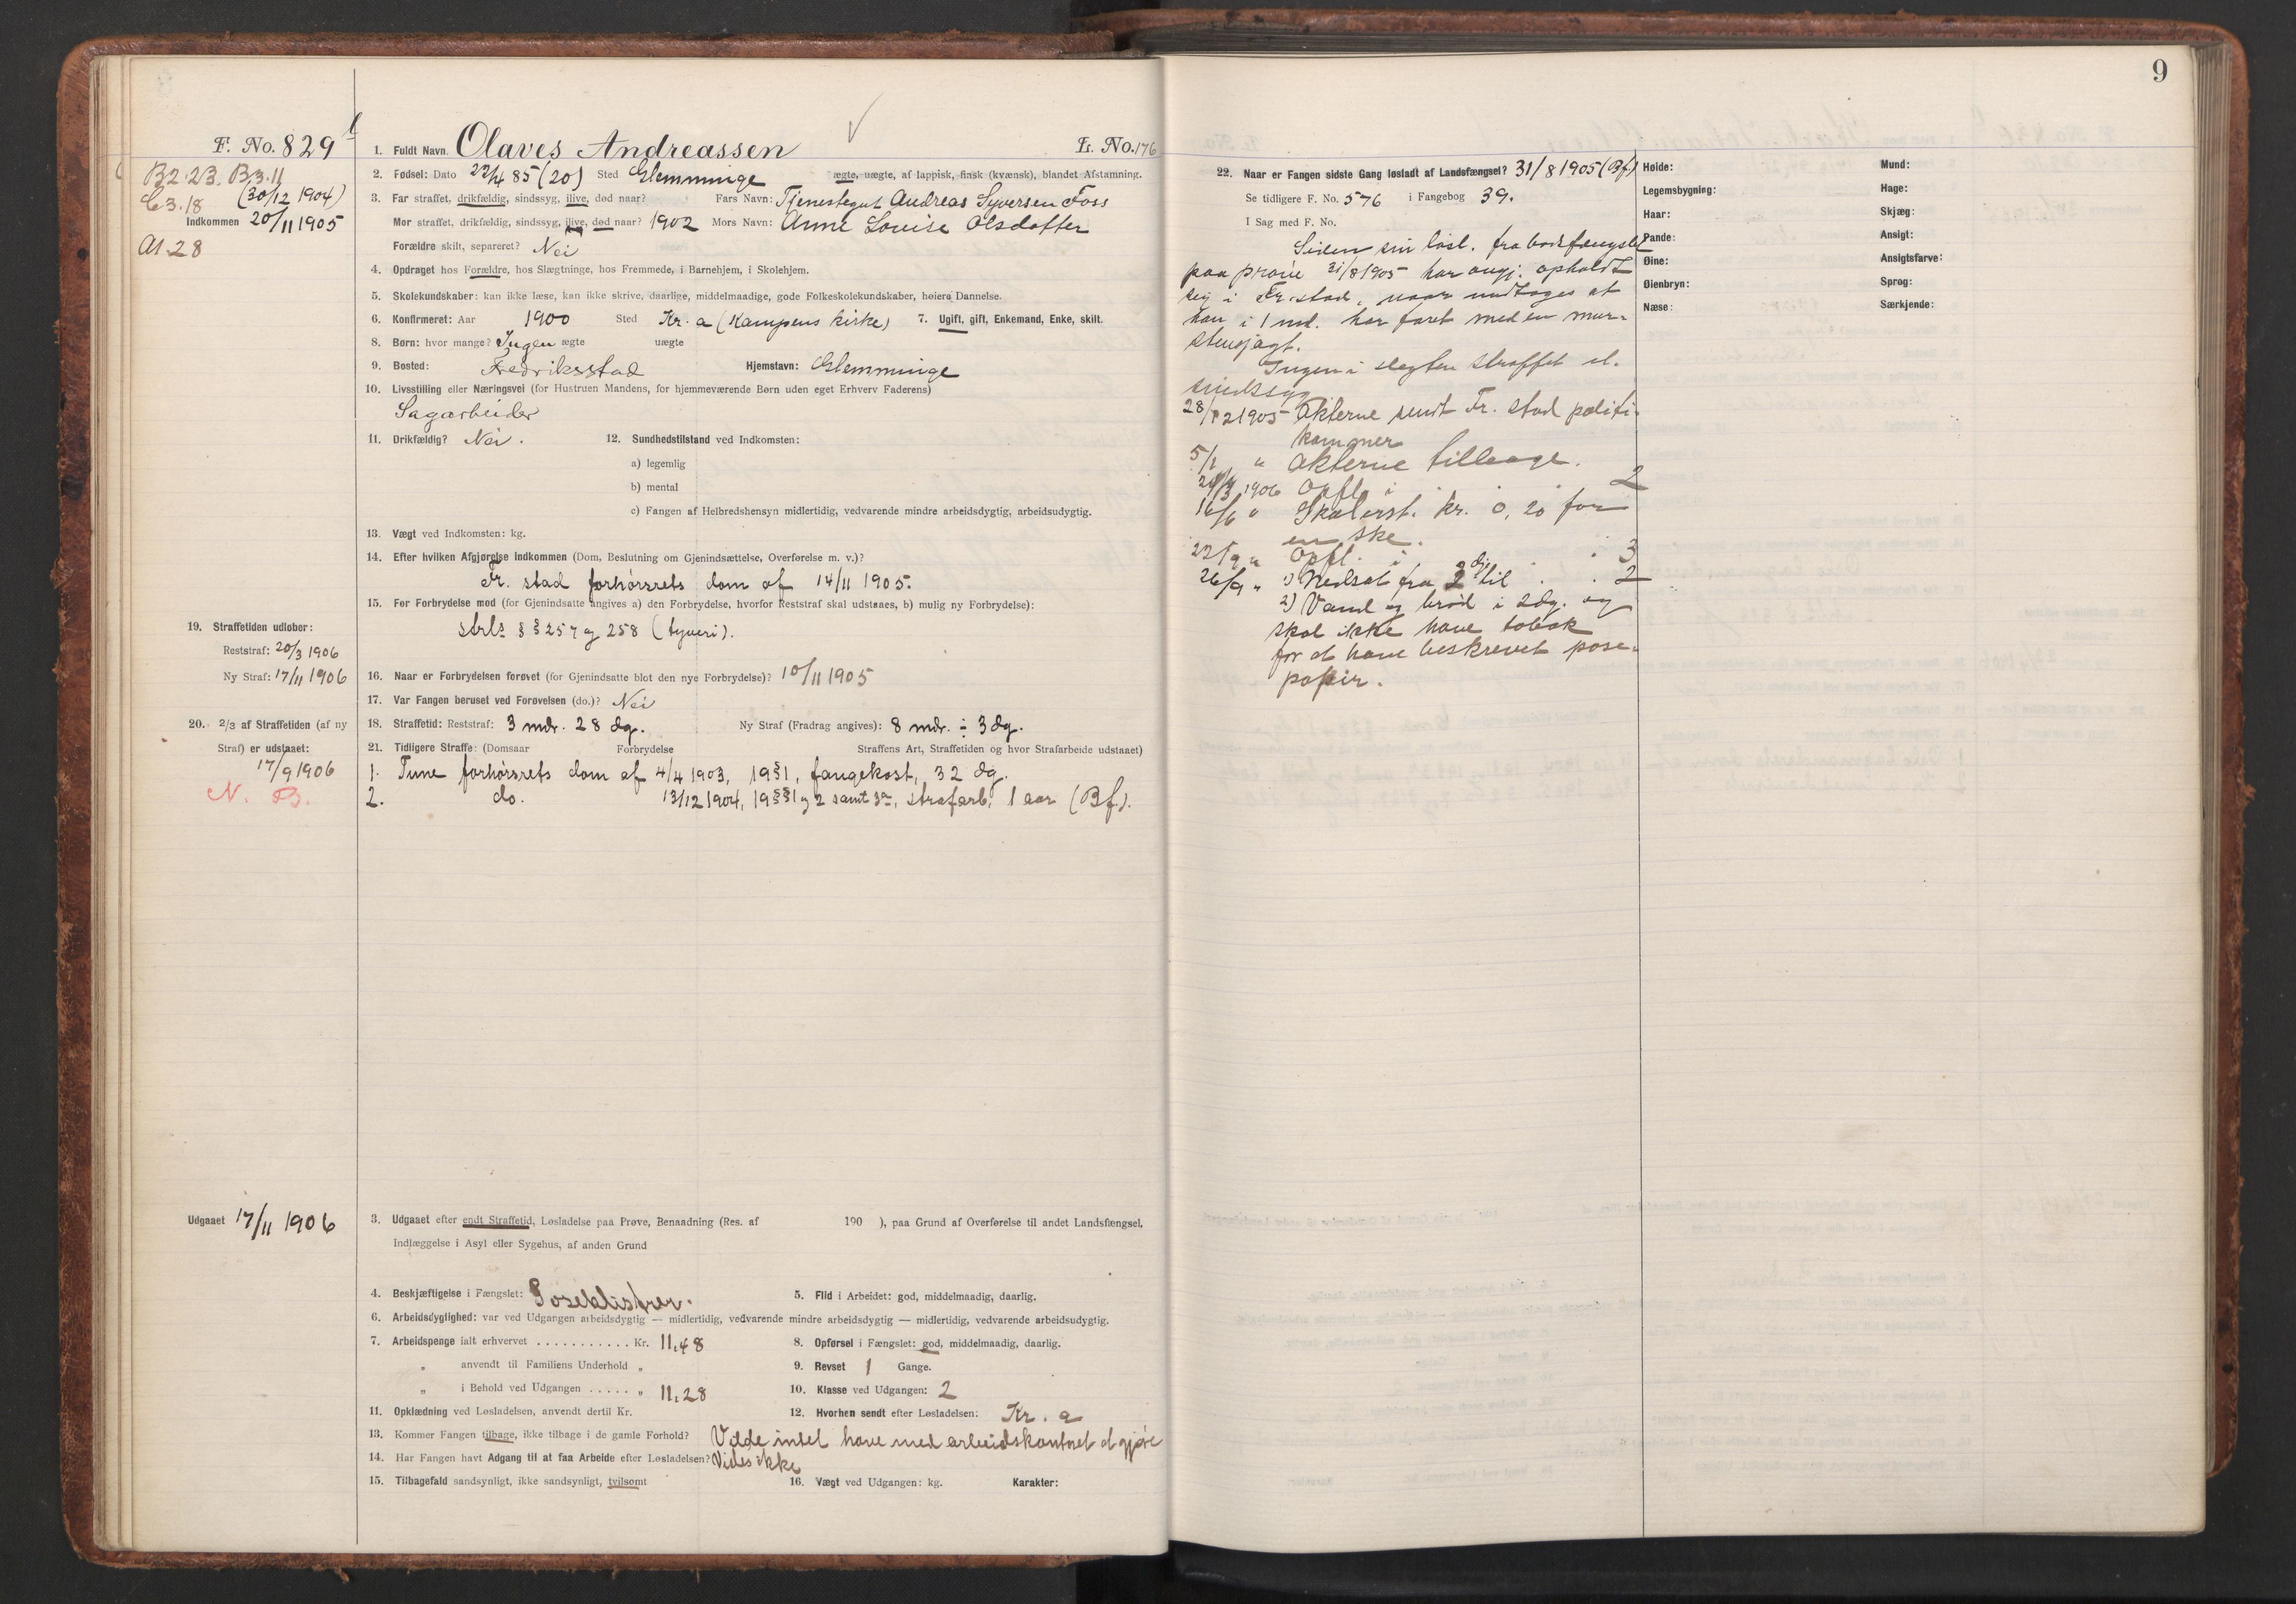 9
F. No. 829
1. Fuldt Navn. Olaves Andreassen L. No. 176
B2.23. B3.11
C3.18 (30/12 1904)
Indkommen 20/11 1905
A1.28
2. Fødsel: Dato 22/4 85 (20) Sted Glemminge ægte, uægte, af lappisk, finsk (kvænsk), blandet Afstamning.
3. Far straffet, drikfældig, sindssyg, ilive, død naar? Fars Navn: Tjenestegut Andreas Syversen Foss
Mor straffet, drikfældig, sindssyg, ilive, død naar? 1902 Mors Navn: Anne Lovise Olsdatter
Forældre skilt, separeret? Nei
4. Opdraget hos Forældre, hos Slægtninge, hos Fremmede, i Barnehjem, i Skolehjem.
5. Skolekundskaber: kan ikke læse, kan ikke skrive, daarlige, middelmaadige, gode Folkeskolekundskaber, høiere Dannelse.
6. Konfirmeret: Aar 1900 Sted Kr. a (Kampens kirke) 7. Ugift, gift, Enkemand, Enke, skilt.
8. Børn: hvor mange? Ingen ægte uægte
9. Bosted: Fredriksstad Hjemstavn: Glemminge
10. Livsstilling eller Næringsvei (for Hustruen Mandens, for hjemmeværende Børn uden eget Erhverv Faderens)
Sagarbeider
11. Drikfældig? Nei. 12. Sundhedstilstand ved Indkomsten:
a) legemlig
b) mental
c) Fangen af Helbredshensyn midlertidig, vedvarende mindre arbeidsdygtig, arbeidsudygtig.
13. Vægt ved Indkomsten: kg.
14. Efter hvilken Afgjørelse indkommen (Dom, Beslutning om Gjenindsættelse, Overførelse m. v.)?
Fr. stad forhørsrets dom af 14/11 1905.
15. For Forbrydelse mod (for Gjenindsatte angives a) den Forbrydelse, hvorfor Reststraf skal udstaaes, b) mulig ny Forbrydelse):
strls §§ 257 og 258 (tyveri).
19. Straffetiden udløber:
Reststraf: 20/3 1906
Ny Straf: 17/11 1906
16. Naar er Forbrydelsen forøvet (for Gjenindsatte blot den nye Forbrydelse)? 10/11 1905
17. Var Fangen beruset ved Forøvelsen (do.)? Nei
20. 2/3 af Straffetiden (af ny
Straf) er udstaaet:
17/9 1906
N. B.
18. Straffetid: Reststraf: 3 mdr. 28 dg. Ny Straf (Fradrag angives): 8 mdr. ÷ 3 dg.
21. Tidligere Straffe: (Domsaar Forbrydelse Straffens Art, Straffetiden og hvor Strafarbeide udstaaet)
1. Tune forhørsrets dom af 4/4 1903, 19§1, fangekost, 32 dg.
2. do. 13/12 1904, 19§§1 og 2 samt 3a, strafarb. 1 aar (Bf.).
Udgaaet 17/11 1906
3. Udgaaet efter endt Straffetid, Løsladelse paa Prøve, Benaadning (Res. af 190 ), paa Grund af Overførelse til andet Landsfængsel,
Indlæggelse i Asyl eller Sygehus, af anden Grund
4. Beskjæftigelse i Fængslet: Poseklistrer. 5. Flid i Arbeidet: god, middelmaadig, daarlig.
6. Arbeidsdygtighed: var ved Udgangen arbeidsdygtig — midlertidig, vedvarende mindre arbeidsdygtig — midlertidig, vedvarende arbeidsudygtig.
7. Arbeidspenge ialt erhvervet . . . . . . . . . . . Kr. 11.48 8. Opførsel i Fængslet: god, middelmaadig, daarlig.
„ anvendt til Familiens Underhold „ 9. Revset 1 Gange.
„ i Behold ved Udgangen . . . . . „ 11.28 10. Klasse ved Udgangen: 2
11. Opklædning ved Løsladelsen, anvendt dertil Kr. 12. Hvorhen sendt efter Løsladelsen: Kr. a
13. Kommer Fangen tilbage, ikke tilbage i de gamle Forhold? Vilde intet have med arbeidskontoret at gjøre
14. Har Fangen havt Adgang til at faa Arbeide efter Løsladelsen? Vides ikke
15. Tilbagefald sandsynligt, ikke sandsynligt, tvilsomt 16. Vægt ved Udgangen: kg. Karakter:
22. Naar er Fangen sidste Gang løsladt af Landsfængsel? 31/8 1905 (Bf.)
Se tidligere F. No. 576 i Fangebog 39.
I Sag med F. No.
Siden sin løsl. fra bodsfængslet
paa prøve 31/8 1905 har angj. opholdt
sig i Fr.stad, naar undtages at
han i 1 md. har faret med en mur-
stensjagt.
Ingen i slegten straffet el.
sindssyg
28/12 1905 Akterne sendt Fr. stad politi-
kammer
5/1 " Akterne tilbage.
1906 Opfl. i 2
16/6 " Skal erst. kr. 0,20 for
en ske.
22/9 " Opfl. i 3
26/9 " 1) Nedsat fra 3die til 2
2) Vand og brød i 2 dg. og
skal ikke have tobak
for at have beskrevet pose-
papir.
Høide: Mund:
Legemsbygning: Hage:
Haar: Skjæg:
Pande: Ansigt:
Øine: Ansigtsfarve:
Øienbryn: Sprog:
Næse: Særkjende: